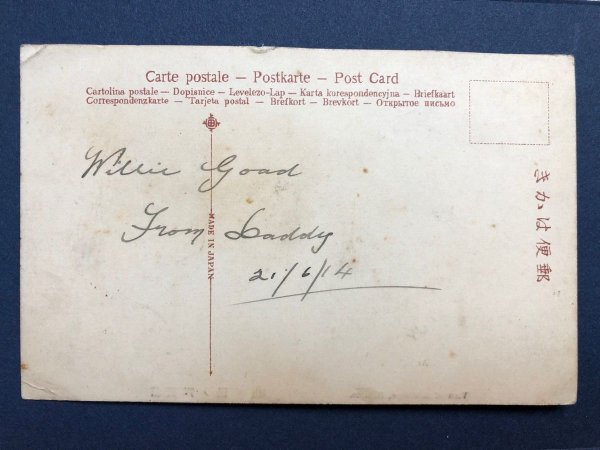 Carte postale — Postkarte — Post Card
Cartolina postale — Dopisnice — Levelezo-Lap — Karta korespondencyjna — Briefkaart
Correspondenzkarte — Tarjeta postal — Brefkort — Brevkort — Открытое письмо
Willie Goad
From Daddy
21/6/14
MADE IN JAPAN
きかは便郵